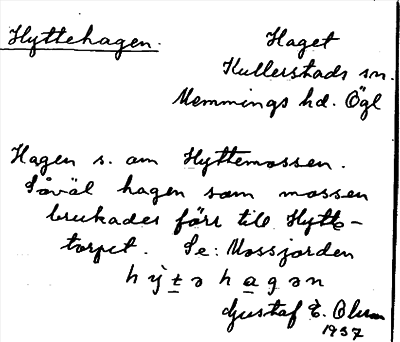 Hyttehagen.
Haget
Kullerstads sn.
Memmings hd. Ögl
Hagen s. om Hyttemossen.
Såväl hagen som mossen
brukades förr till Hytte-
torpet. Se: Mossjorden
hỳt̠ə ha̠gən
Gustaf E. Olson
1937